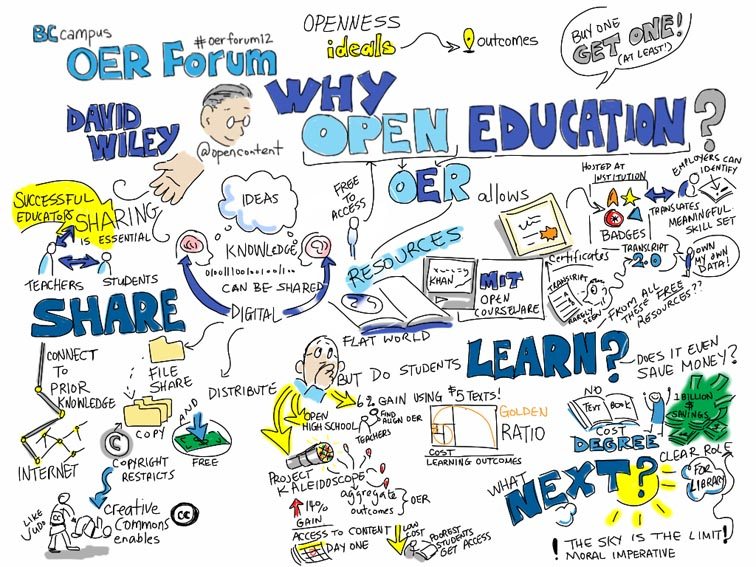 BCcampus
#oerforum12
OER Forum
OPENNESS
ideals
outcomes
BUY ONE
GET ONE!
(AT LEAST!)
DAVID
WILEY
@opencontent
WHY
OPEN EDUCATION?
OER
allows
FREE
TO
ACCESS
SUCCESSFUL
EDUCATORS
SHARING
IS ESSENTIAL
TEACHERS
STUDENTS
IDEAS
KNOWLEDGE
CAN BE SHARED
DIGITAL
RESOURCES
FLAT WORLD
KHAN
MIT
OPEN
COURSEWARE
Certificates
HOSTED AT
INSTITUTION
BADGES
TRANSLATES
EMPLOYERS CAN
IDENTIFY
MEANINGFUL
SKILL SET
TRANSCRIPT
2.0
OWN
MY OWN
DATA!
TRANSCRIPT
RARELY
SEEN
FROM ALL
THESE FREE
RESOURCES??
SHARE
CONNECT
TO
PRIOR
KNOWLEDGE
INTERNET
FILE
SHARE
COPY
COPYRIGHT
RESTRICTS
DISTRIBUTE
AND
FREE
LIKE
JUDO
Creative
Commons
enables
cc
BUT DO STUDENTS
LEARN?
OPEN
HIGH SCHOOL
6% GAIN USING $5 TEXTS!
FIND
ALIGN OER
TEACHERS
GOLDEN
RATIO
COST
LEARNING OUTCOMES
PROJECT
KALEIDOSCOPE
aggregate
outcomes
OER
14%
GAIN
ACCESS TO CONTENT
DAY ONE
LOW
COST
POOREST
STUDENTS
GET ACCESS
DOES IT EVEN
SAVE MONEY?
NO
TEXT BOOK
COST
DEGREE
1 BILLION
$
SAVINGS
CLEAR ROLE
FOR
LIBRARY
WHAT
NEXT?
! THE SKY IS THE LIMIT!
MORAL IMPERATIVE